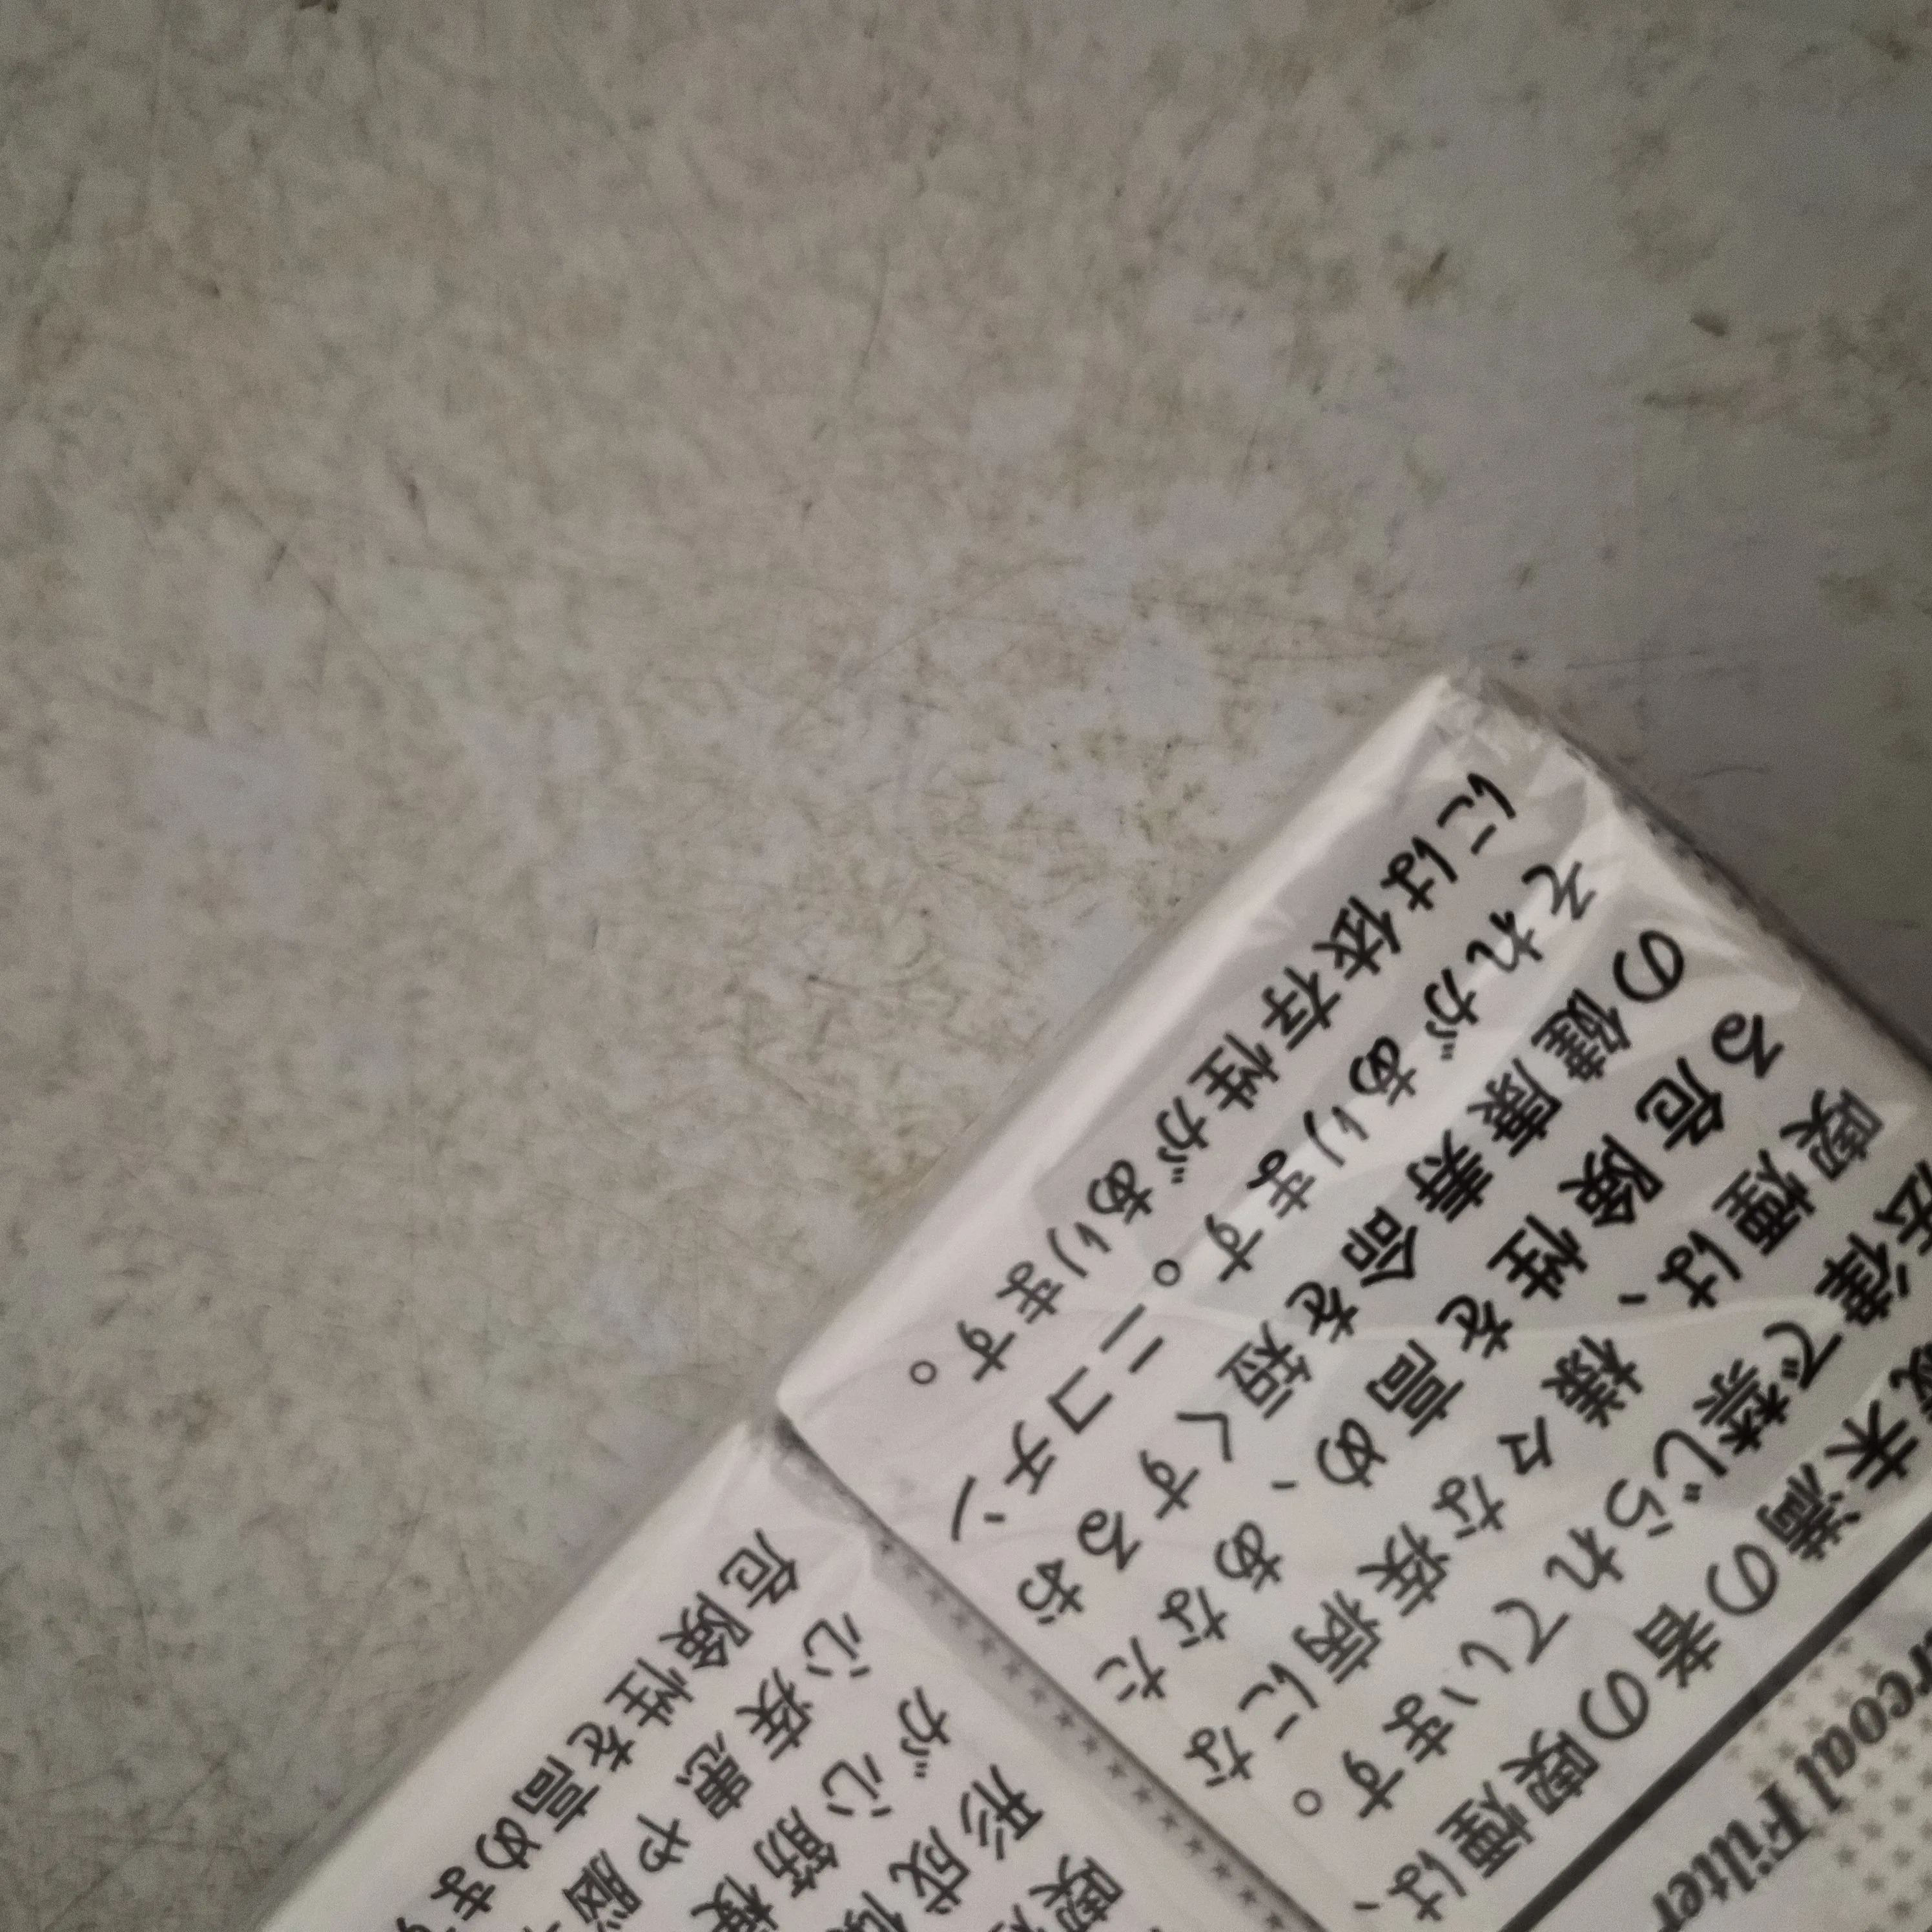 未満の者の喫煙は、
法律で禁じられています。
喫煙は、様々な疾病にな
る危険性を高め、あなた
の健康寿命を短くするお
それがあります。ニコチン
には依存性があります。
rcoal Filter
喫煙
形成
が心筋梗
心疾患や脳
危険性を高めま